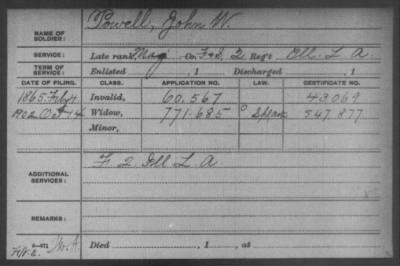 NAME OF SOLDIER: Powell, John W.
SERVICE: Late rank Maj Co. F&S, 2 Reg't Ill. L. A.
TERM OF SERVICE: Enlisted , 1 Discharged , 1
DATE OF FILING. CLASS. APPLICATION NO. LAW. CERTIFICATE NO.
1865 Feby Invalid, 60.567 43.069
1902 Oct 14 Widow, 771.685 547.877
Minor,
ADDITIONAL SERVICES: F 2 Ill L A
REMARKS:
Died , 1 , at